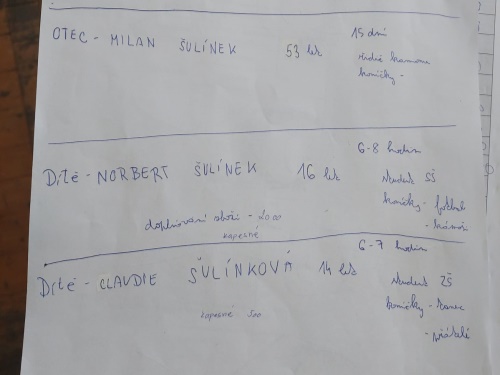 OTEC - MILAN ŠULÍNEK 53 let 15 dní
koníčky -
6-8 hodin
Dítě - NORBERT ŠULÍNEK 16 let student SŠ
koníčky - fotbal
doplňování zboží - 2000
kapesné
6-7 hodin
Dítě - CLAUDIE ŠULÍNKOVÁ 14 let student ZŠ
koníčky - tanec
kapesné 500
- přátelé